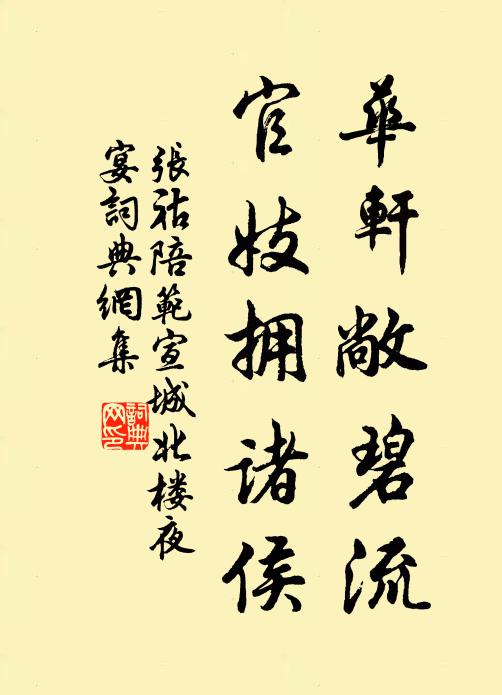 華軒敞碧流
官妓拥诸侯
張祜陪範宣城北楼夜
宴詞典網集
詞典
网印